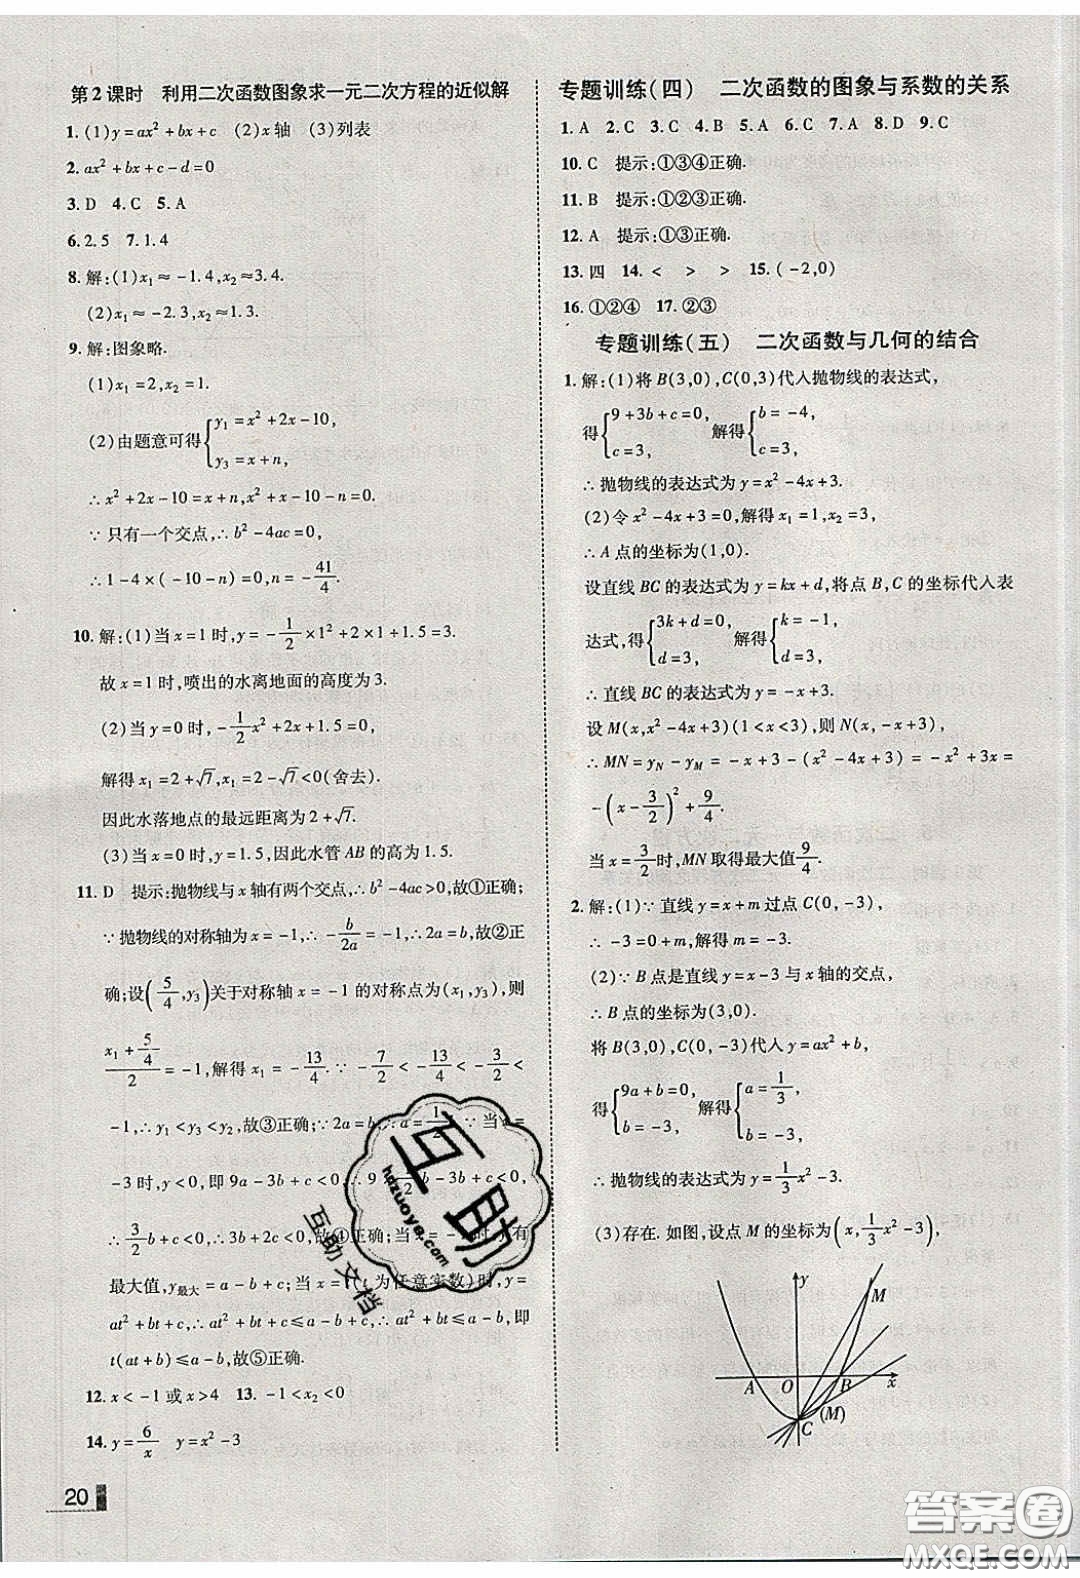 第2课时 利用二次函数图象求一元二次方程的近似解
1.(1)y=ax²+bx+c (2)x轴 (3)列表
2.ax²+bx+c-d=0
3.D 4.C 5.A
6.2.5 7.1.4
8.解:(1)x₁≈-1.4,x₂≈3.4.
(2)x₁≈-2.3,x₂≈1.3.
9.解:图象略.
(1)x₁=2,x₂=1.
(2)由题意可得{y₁=x²+2x-10, y₃=x+n,
∴x²+2x-10=x+n,x²+x-10-n=0.
∵只有一个交点,∴b²-4ac=0,
∴1-4×(-10-n)=0,n=-41/4.
10.解:(1)当x=1时,y=-1/2×1²+2×1+1.5=3.
故x=1时,喷出的水离地面的高度为3.
(2)当y=0时,-1/2x²+2x+1.5=0,
解得x₁=2+√7,x₂=2-√7<0(舍去).
因此水落地点的最远距离为2+√7.
(3)当x=0时,y=1.5,因此水管AB的高为1.5.
11.D 提示:抛物线与x轴有两个交点,∴b²-4ac>0,故①正确;
∵抛物线的对称轴为x=-1,∴-b/2a=-1,∴2a=b,故②正
确;设(5/4,y₃)关于对称轴x=-1的对称点为(x₁,y₃),则
(x₁+5/4)/2=-1,解得x₁=-13/4.∵-13/4<-4/3<-3/2<
-1,∴y₁<y₃<y₂,故③正确;∵2a=b,∴a=1/2 ∵当x=
-3时,y<0,即9a-3b+c<0,∴9× /2b-3b+c<0,
∴3/2b+c<0,∴3b+2c<0,故④正确;当x=-1时,y有
最大值,y最大=a-b+c;当x= (t为任意实数)时,y=
at²+bt+c,∴at²+bt+c≤a-b+c,∴at²+bt≤a-b,即
t(at+b)≤a-b,故⑤正确.
12.x<-1或x>4 13.-1<x₂<0
14.y=6/x y=x²-3
20
专题训练(四) 二次函数的图象与系数的关系
1.A 2.C 3.C 4.B 5.A 6.C 7.A 8.D 9.C
10.C 提示:①③④正确.
11.B 提示:①②③正确.
12.A 提示:①③正确.
13.四 14.< > > 15.(-2,0)
16.①②④ 17.②③
专题训练(五) 二次函数与几何的结合
1.解:(1)将B(3,0),C(0,3)代入抛物线的表达式,
得{9+3b+c=0, c=3, 解得{b=-4, c=3,
∴抛物线的表达式为y=x²-4x+3.
(2)令x²-4x+3=0,解得x₁=1,x₂=3,
∴A点的坐标为(1,0).
设直线BC的表达式为y=kx+d,将点B,C的坐标代入表
达式,得{3k+d=0, d=3, 解得{k=-1, d=3,
∴直线BC的表达式为y=-x+3.
设M(x,x²-4x+3)(1<x<3),则N(x,-x+3),
∴MN=y_N-y_M=-x+3-(x²-4x+3)=-x²+3x=
-(x-3/2)²+9/4.
当x=3/2时,MN取得最大值9/4.
2.解:(1)∵直线y=x+m过点C(0,-3),
∴-3=0+m,解得m=-3.
(2)∵B点是直线y=x-3与x轴的交点,
∴B点的坐标为(3,0).
将B(3,0),C(0,-3)代入y=ax²+b,
得{9a+b=0, b=-3, 解得{a=1/3, b=-3,
∴抛物线的表达式为y=1/3x²-3.
(3)存在.如图,设点M的坐标为(x,1/3x²-3),
y M
A O B x
C (M)
互助
hdzuoye.com
互助文档
答案圈
MXQE.COM